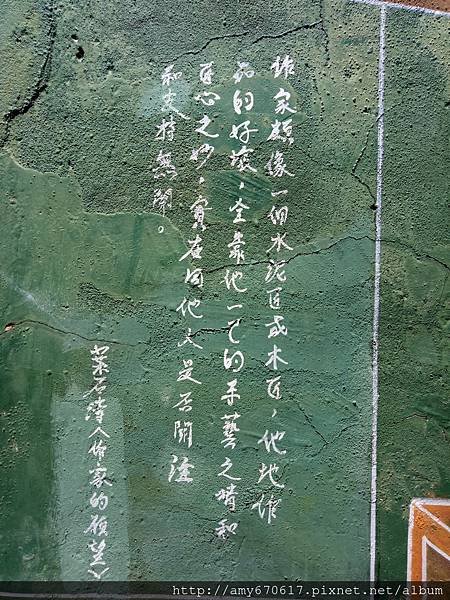 作家頗像一個水泥匠或木匠，他地作
品的好壞，全靠他一己的手藝之精和
匠心之妙，實在同他人是否關注
和支持無關。
葉石濤〈作家的條件〉
http://amy670617.pixnet.net/album